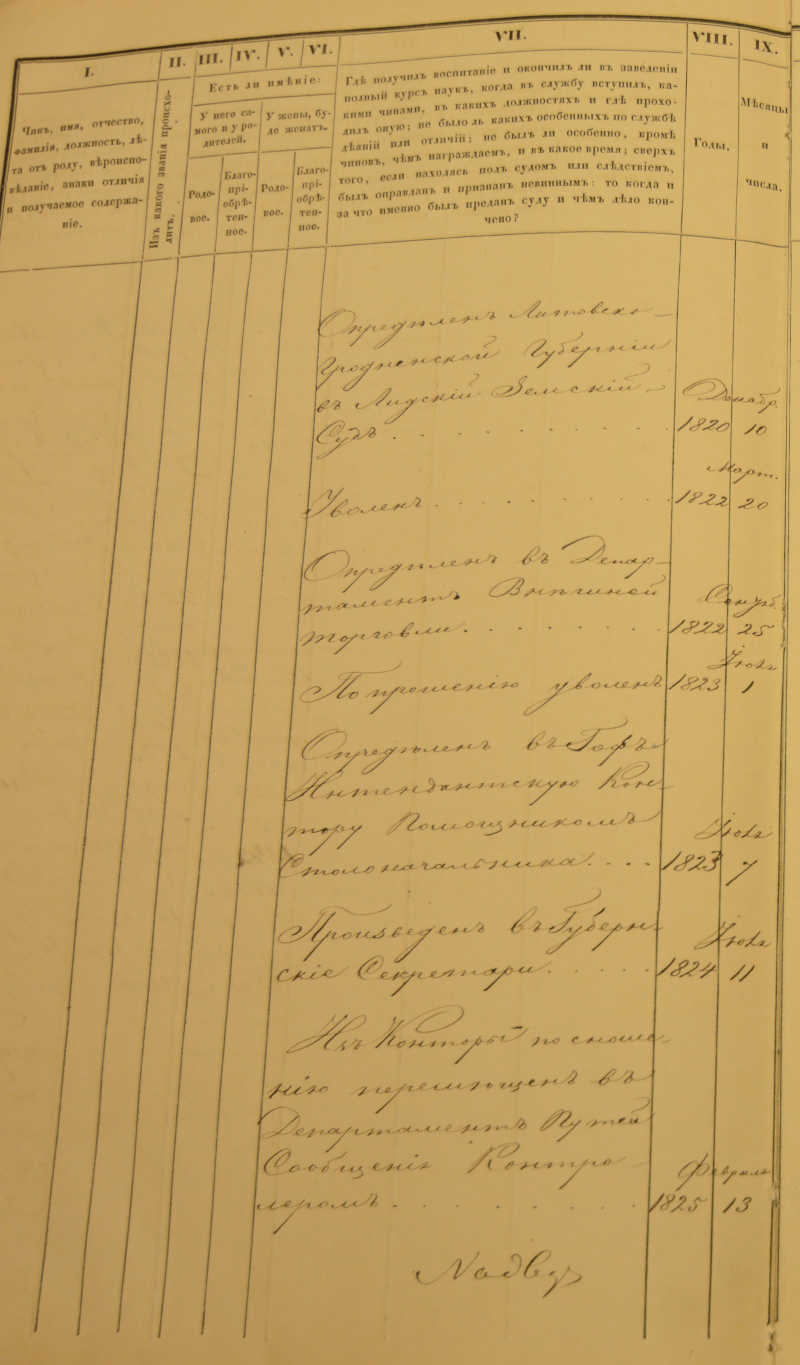 I.
II.
III.
IV.
V.
VI.
VII.
VIII.
IX.
Чинъ, имя, отчество,
фамилія, должность, лѣ-
та отъ роду, вѣроиспо-
вѣданіе, знаки отличія
и получаемое содержа-
ніе.
Изъ какого званія происхо-
дитъ.
Есть ли имѣніе:
У него са-
мого и у ро-
дителей.
У жены, бу-
де женатъ.
Родо-
вое.
Благо-
прі-
обрѣ-
тен-
ное.
Родо-
вое.
Благо-
прі-
обрѣ-
тен-
ное.
Гдѣ получилъ воспитаніе и окончилъ ли въ заведеніи
полный курсъ наукъ, когда въ службу вступилъ, ка-
кими чинами, въ какихъ должностяхъ и гдѣ прохо-
дилъ оную; не было ль какихъ особенныхъ по службѣ
дѣяній или отличій; не былъ ли особенно, кромѣ
чиновъ, чѣмъ награждаемъ, и въ какое время; сверхъ
того, если находясь подъ судомъ или слѣдствіемъ,
былъ оправданъ и признанъ невиннымъ: то когда и
за что именно былъ преданъ суду и чѣмъ дѣло кон-
чено?
Годы.
Мѣсяцы
и
числа.
Опредѣленъ Литовско-
Гродненской Губерніи
въ Лидскій Земскій
Судъ . . . . . . . . 1820 Декабр. 10
Уволенъ . . . . . . . 1822 Март. 20
Опредѣленъ въ Депар-
таментъ Внѣшней
торговли . . . . . . . 1822 25
По прошенію уволенъ 1823 1
Опредѣленъ въ Гофъ
Интендантскую Кон
тору Помощникомъ
Столоначальника . . . . 1823 7
Произведенъ въ Губерн
скіе Секретари . . . . . 1824 11
Изъ Конторы по сноше
нію перемѣщенъ въ
Департаментъ Путей
Сообщенія Контро
леромъ . . . . . . . 1825 Февраля 13
Надву